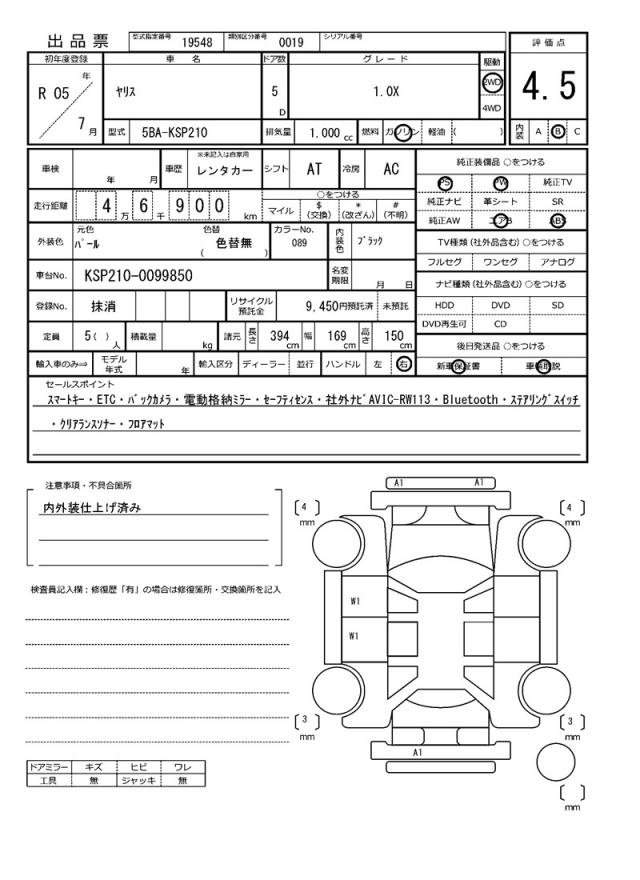 出品票 型式指定番号 19548 類別区分番号 0019 シリアル番号
初年度登録 車名 ドア数 グレード 駆動 評価点
R 05 年 7 月 ヤリス 5 D 1.0X 2WD 4WD 4.5
型式 5BA-KSP210 排気量 1.000 cc 燃料 ガソリン 軽油 ( ) 内装 A B C
車検 年 月 車歴 ※未記入は自家用 レンタカー シフト AT 冷房 AC
走行距離 4万 6千 900 km ○をつける マイル $(交換) *(改ざん) #(不明)
外装色 元色 パール 色替 ( 色替無 ) カラーNo. 089 内装色 ブラック
車台No. KSP210-0099850 名変期限 月 日
登録No. 抹消 リサイクル預託金 9,450円預託済 未預託
定員 5( )人 積載量 kg 諸元 長さ 394 cm 幅 169 cm 高さ 150 cm
輸入車のみ⇒ モデル年式 年 輸入区分 ディーラー 並行 ハンドル 左 右
純正装備品 ○をつける
PS PW 純正TV
純正ナビ 革シート SR
純正AW エアB ABS
TV種類 (社外品含む) ○をつける
フルセグ ワンセグ アナログ
ナビ種類 (社外品含む) ○をつける
HDD DVD SD
DVD再生可 CD
後日発送品 ○をつける
新車保証書 車輌取説
セールスポイント
スマートキー・ETC・バックカメラ・電動格納ミラー・セーフティセンス・社外ナビAVIC-RW113・Bluetooth・ステアリングスイッチ
・クリアランスソナー・フロアマット
注意事項・不具合箇所
内外装仕上げ済み
検査員記入欄:修復歴「有」の場合は修復箇所・交換箇所を記入
ドアミラー キズ ヒビ ワレ
工具 無 ジャッキ 無
A1 A1
[4] mm [4] mm
W1
W1
[3] mm [3] mm
A1
[ ] mm